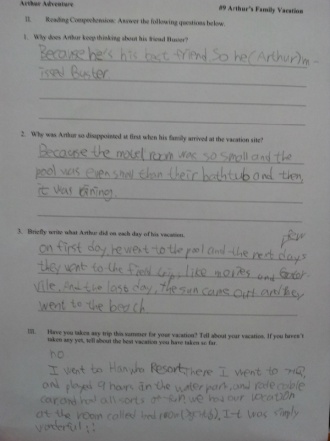 Arthur Adventure #9 Arthur's Family Vacation
II. Reading Comprehension: Answer the following questions below.
1. Why does Arthur keep thinking about his friend Buster?
Because he's his best friend So he(Arthur)m-
issed Buster
2. Why was Arthur so disappointed at first when his family arrived at the vacation site?
Because the motel room was so small and the
pool was even small than their bathtub and then
it was raining.
3. Briefly write what Arthur did on each day of his vacation.
on first day, he went to the pool and the next days
they went to the like movies and
ville, And the last day, The sun came out and they
went to the beach.
III. Have you taken any trip this summer for your vacation? Tell about your vacation. If you haven't
taken any yet, tell about the best vacation you have taken so far.
no.
I went to Hanwha Resort, here I went to
and played 9 hours in the water park, and rode cable
car and had all sorts of fun, we had our vacation
at the room called
It was simply
wonderful!!